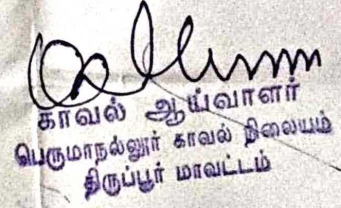 காவல் ஆய்வாளர்
பெருமாநல்லூர் காவல் நிலையம்
திருப்பூர் மாவட்டம்